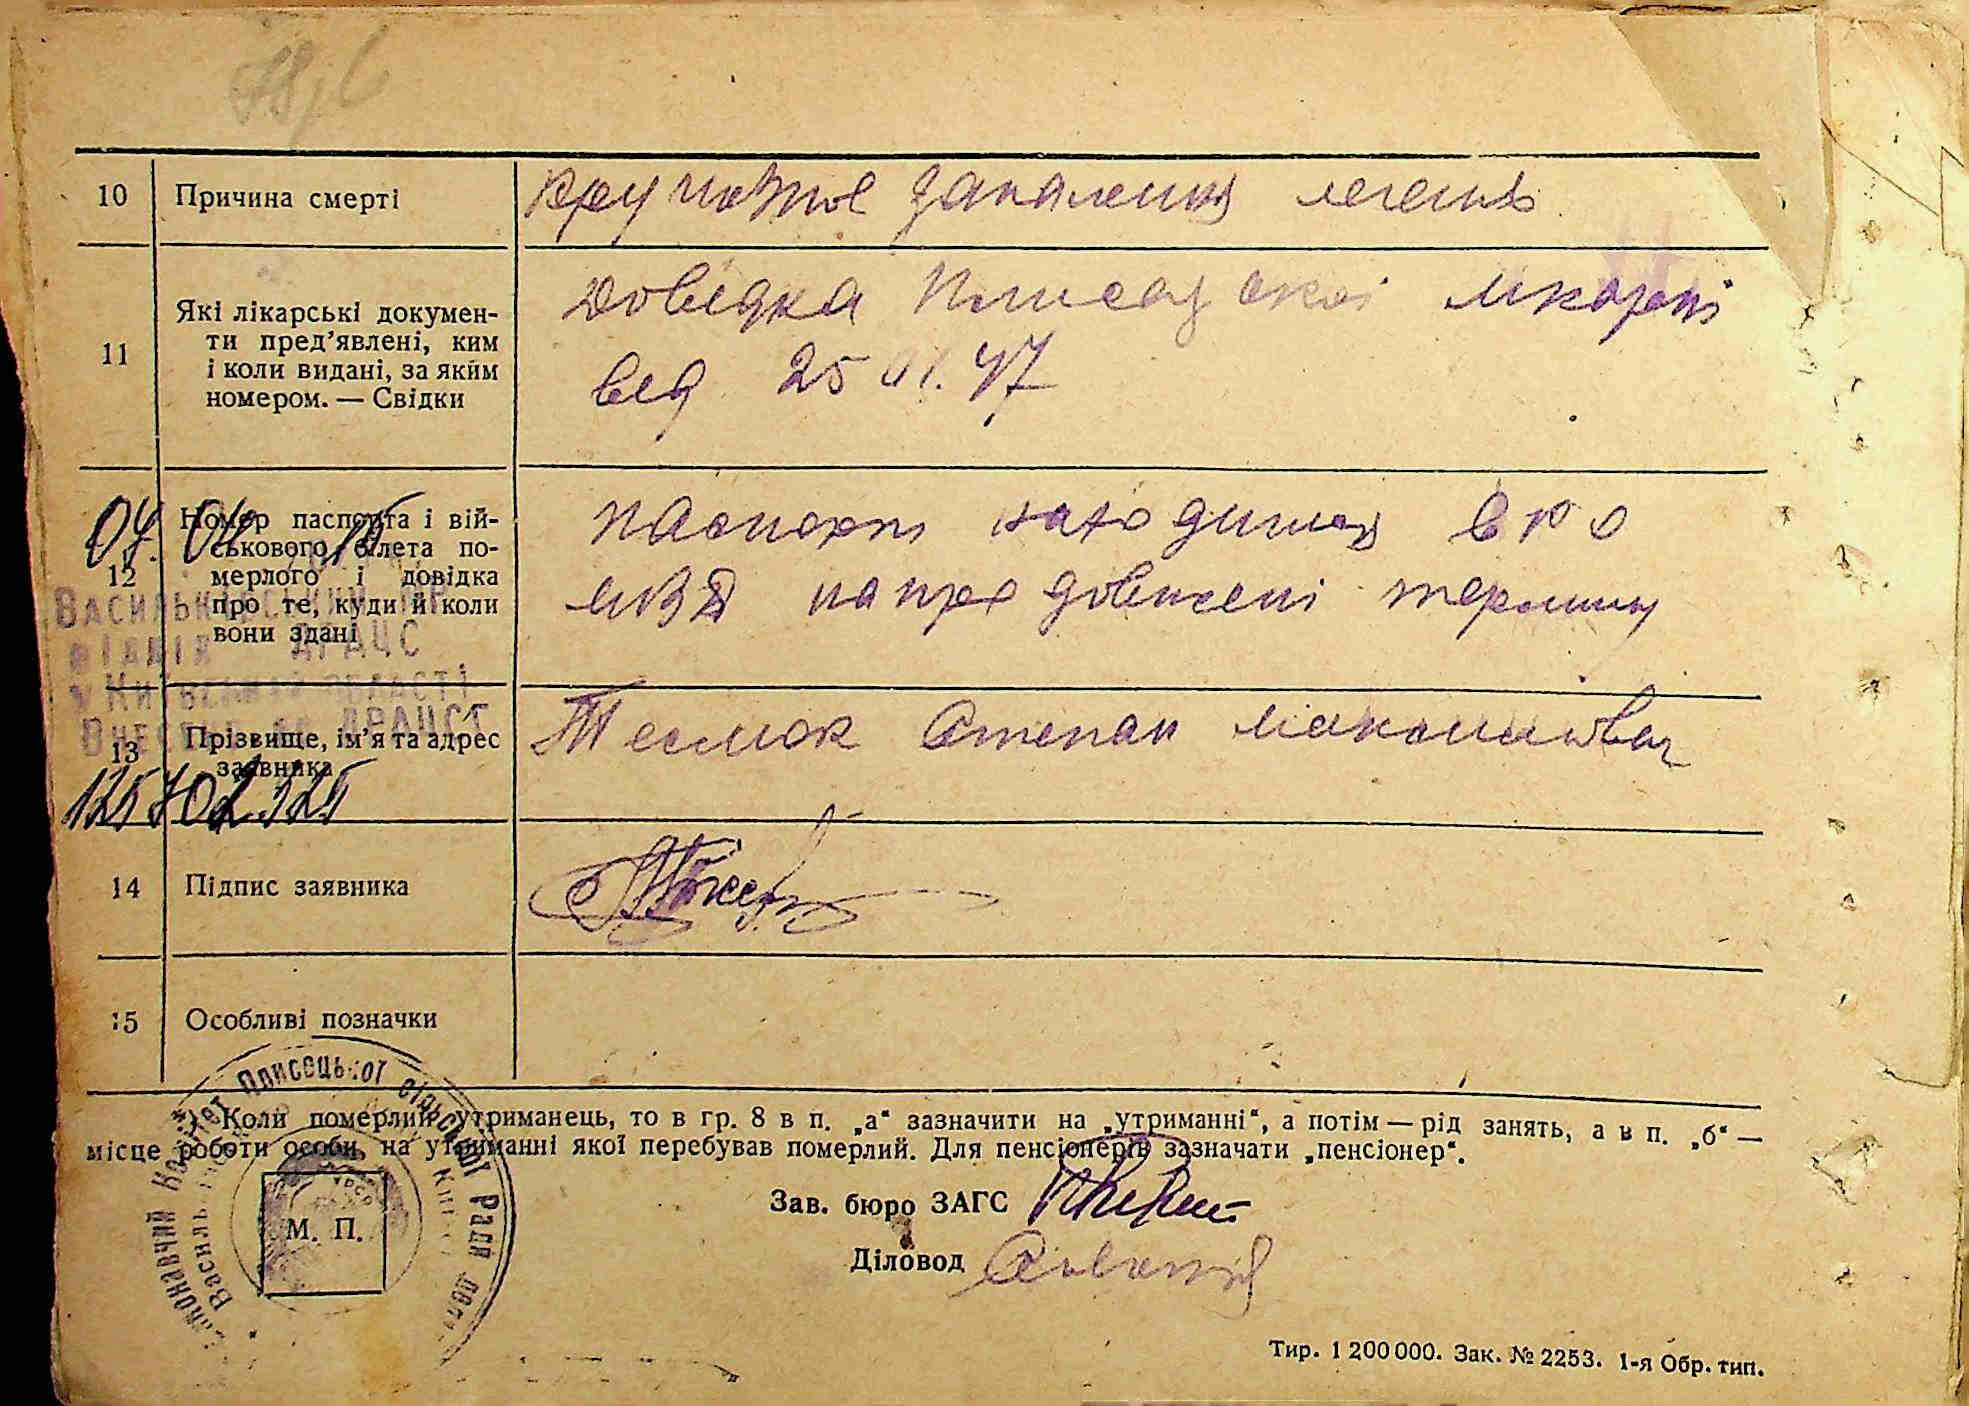 10 Причина смерті
Крупозне запалення легень
11 Які лікарські докумен-
ти пред’явлені, ким
і коли видані, за яким
номером. — Свідки
Довідка Плисецької лікарні
від 25 01. 47
12 Номер паспорта і вій-
ськового білета по-
мерлого і довідка
про те, куди й коли
вони здані
паспорт находиться в Р О
МВД на продовжені терміну
04. 04 15
Васильківський МР
відділ ДРАЦС
у Київській області
Внесено до ДРАЦСГ
125702525
13 Прізвище, ім’я та адрес
заявника
Теслюк Степан
14 Підпис заявника
15 Особливі позначки
*) Коли померлий утриманець, то в гр. 8 в п. „а“ зазначити на „утриманні“, а потім — рід занять, а в п. „б“ —
місце роботи особи, на утриманні якої перебував померлий. Для пенсіонерів зазначати „пенсіонер“.
Виконавчий Комітет Плисецької сільської Ради
М. П.
Зав. бюро ЗАГС
Діловод
Тир. 1 200 000. Зак. № 2253. 1-я Обр. тип.